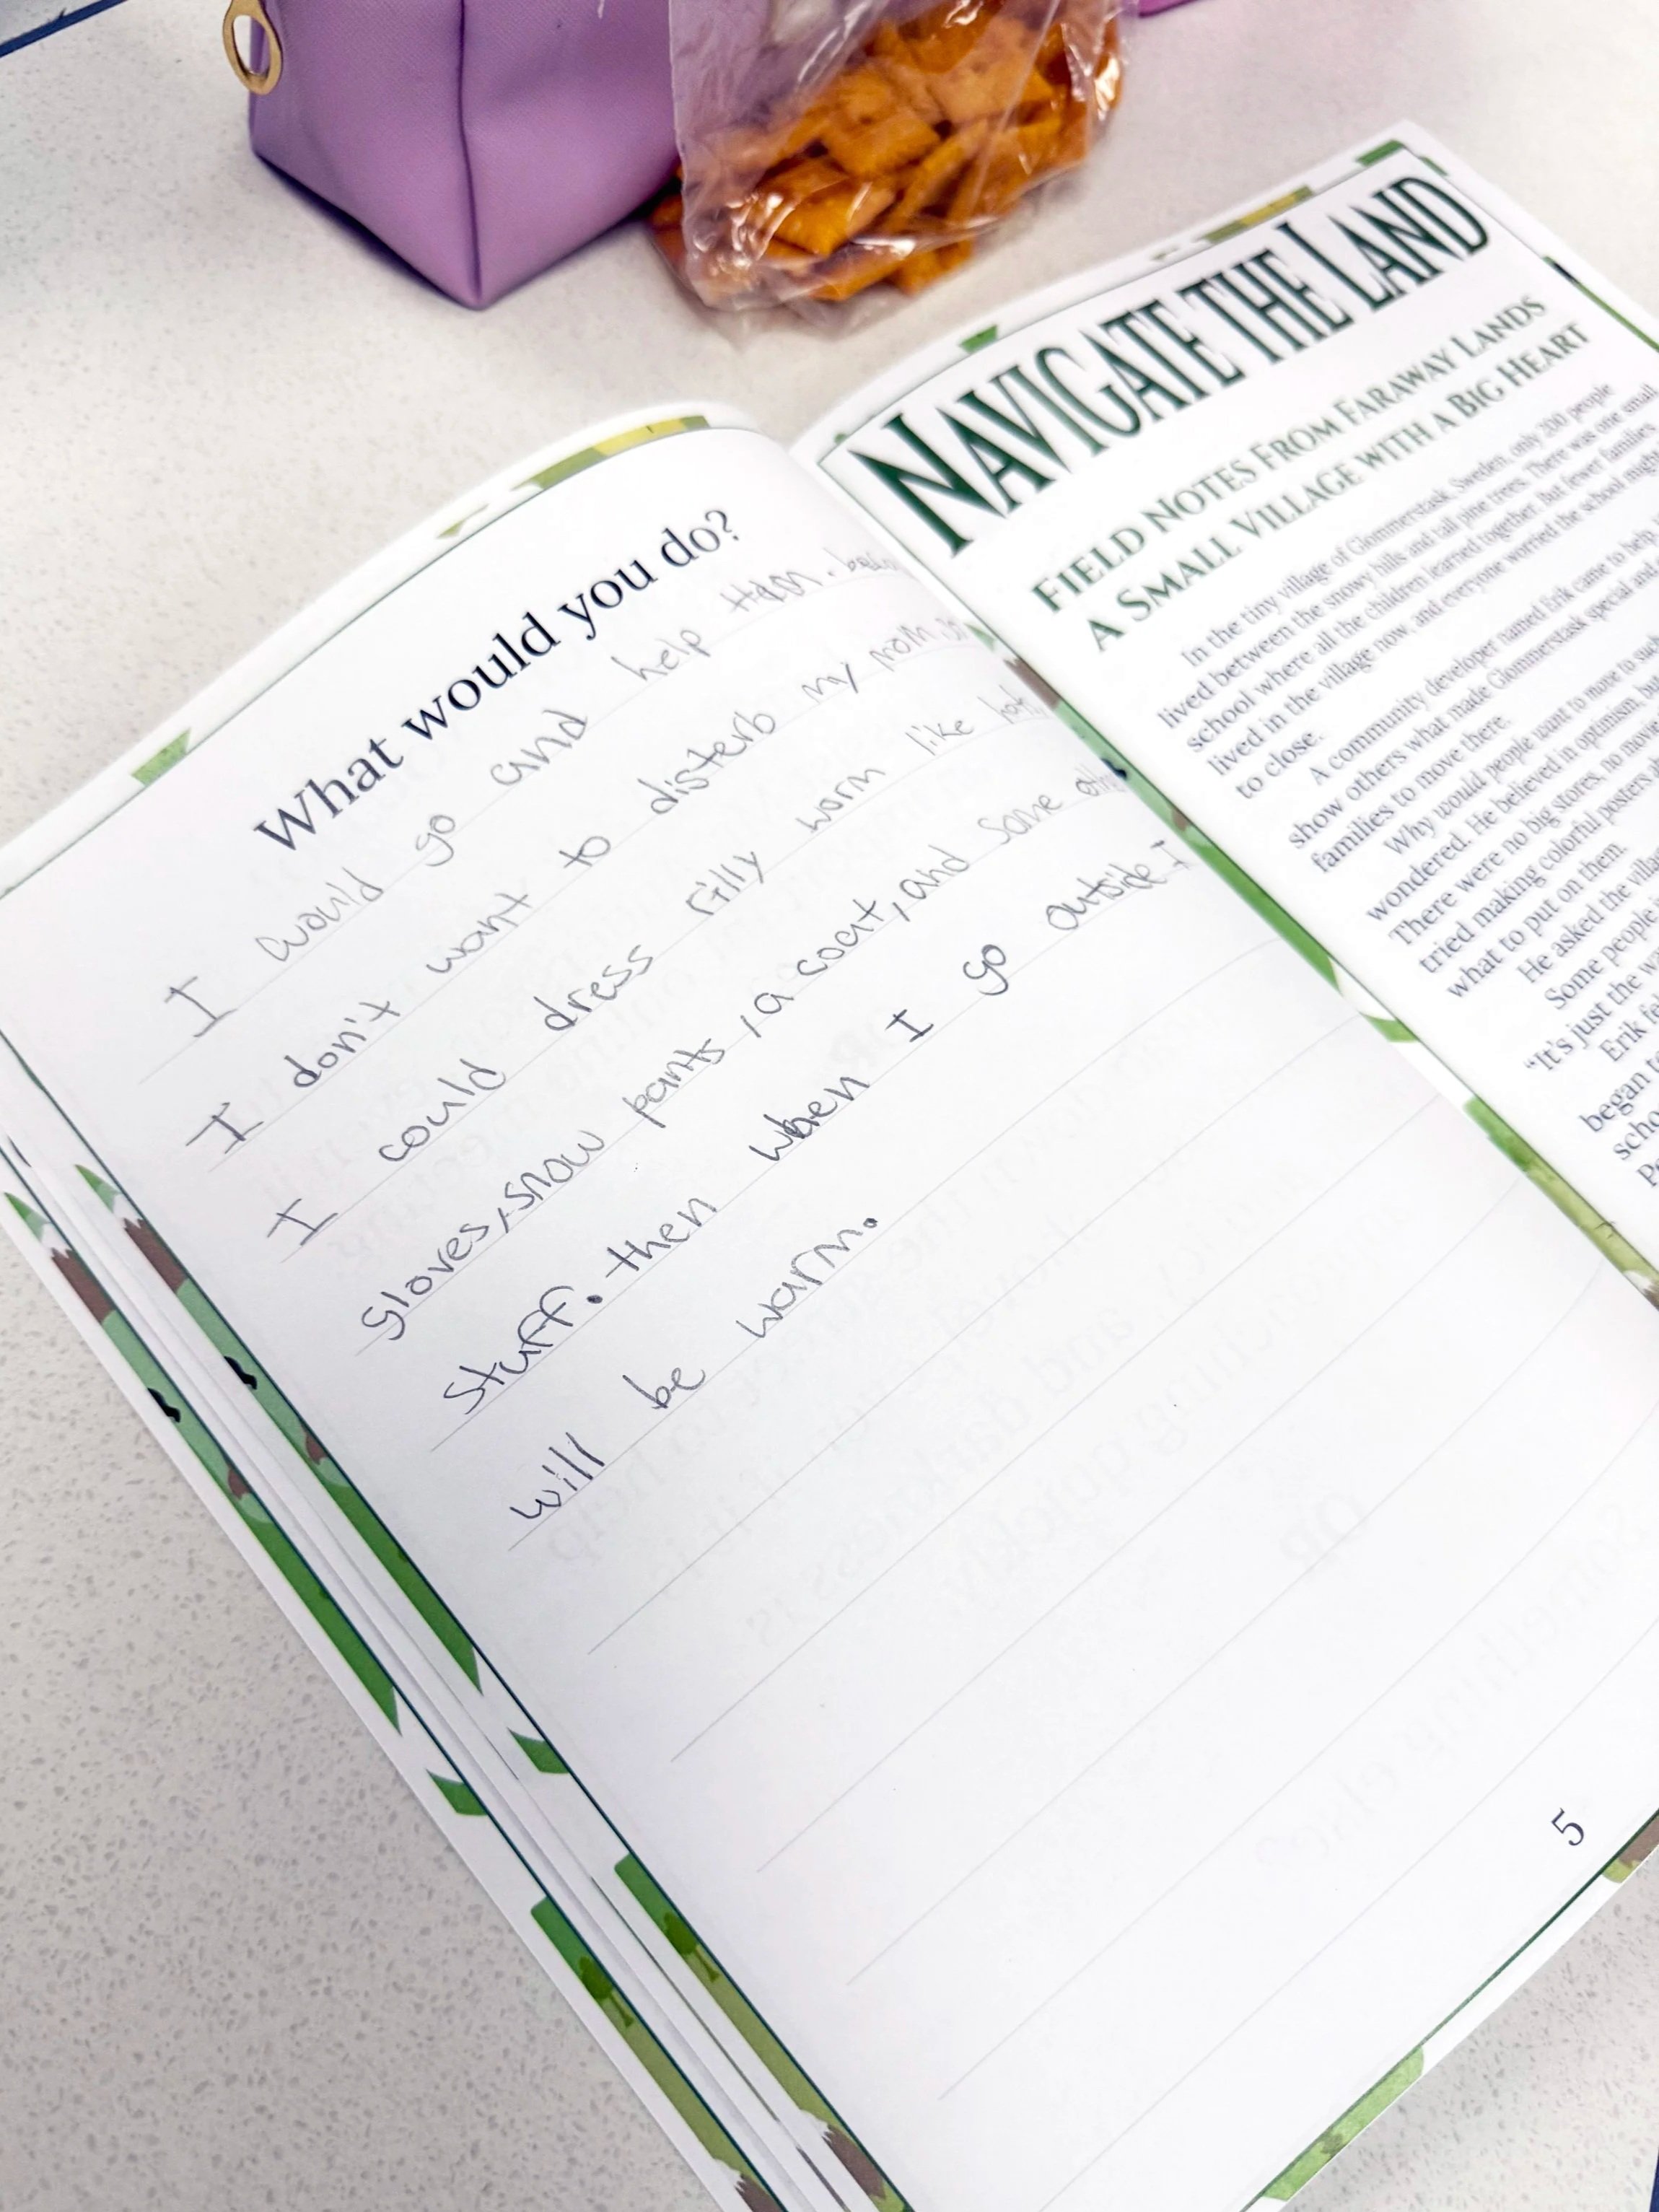 What would you do?
I would go and help
I don't want to disterb my mom
I could dress rilly warm like
gloves, snow pants, a coat, and some
stuff. then when I go outside I
will be warm.
5
NAVIGATE THE LAND
FIELD NOTES FROM FARAWAY LANDS
A SMALL VILLAGE WITH A BIG HEART
In the tiny village of Glommerstask, Sweden, only 200 people
lived between the snowy hills and tall pine trees. There was one small
school where all the children learned together. But fewer families
lived in the village now, and everyone worried the school might
to close.
A community developer named Erik came to help
show others what made Glommerstask special and
families to move there.
Why would people want to move to such
wondered. He believed in optimism, but
There were no big stores, no movie
tried making colorful posters
what to put on them.
He asked the villa
Some people
"It's just the wa
Erik fel
began to
scho